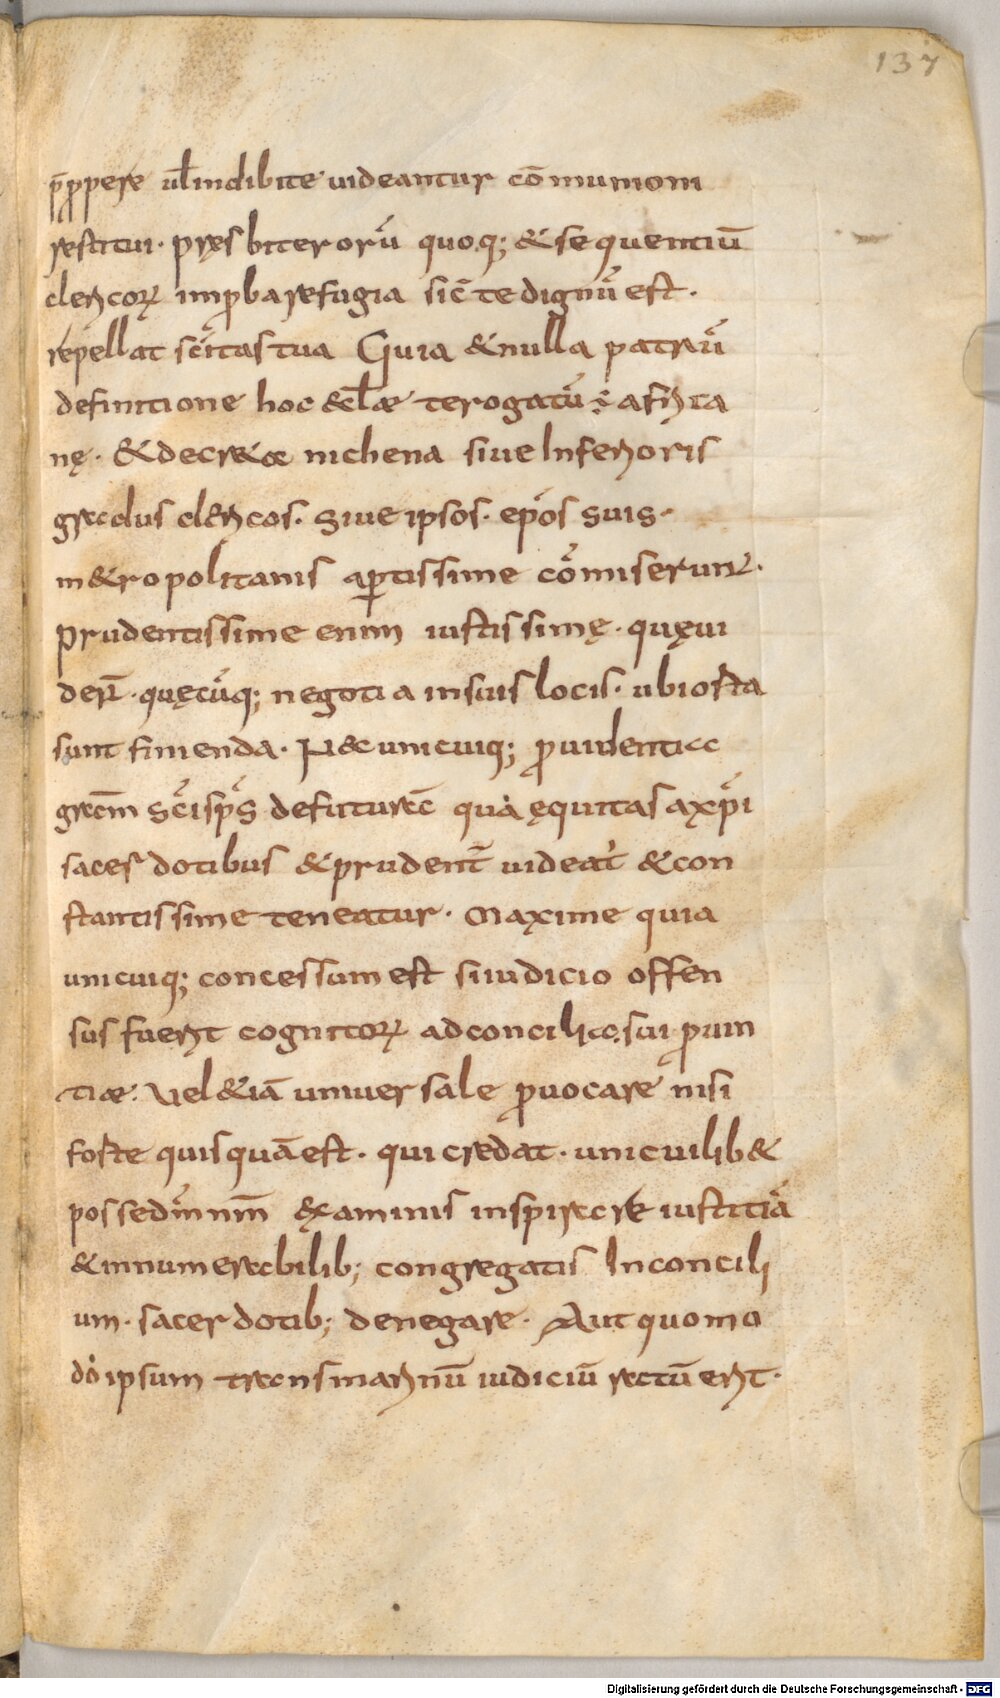 137
p̄propere ul̄indibite uideantur cōmunioni
restitui· pręsbiterorū quoq; &sequentiū
clericoꝝ improbarefugia sic̄ te dignū est·
repellat sc̄itas tua Quia &nulla patrū
definitione hoc &cl̄æ terogatū ÷ africa
nę· &decr&a nichena siue Inferioris
gradus clericos· siue ipsos· ep̄os suis·
m&ropolitanis aptissime cōmiserunt·
prudentissime enim iustissimę· quęui
der̄· quęcūq; negotia insuis locis· ubiorta
sunt finienda· Necunicuiq; prouidentia
gratiā sc̄isp̄s defuturā quā ęquitas axp̄i
sacerdotibus &prudent̄ uideat̄ &con
stantissime teneatur· Maxime quia
unicuiq; concessum est siiudicio offen
sus fuerit cognitoꝝ adconcilia sui prouin
tiæ· Vel &iā uniuersale prouocare nisi
forte quisquā est· qui credat· unicuilib&
posse dm̄ nm̄ examinis inspirare iustitiā
&innumerabilib; congregatis Inconcili
um· sacerdotib; denegare· Aut quomo
do ipsum transmarinū iudiciū ractū erit·
Digitalisierung gefördert durch die Deutsche Forschungsgemeinschaft - DFG